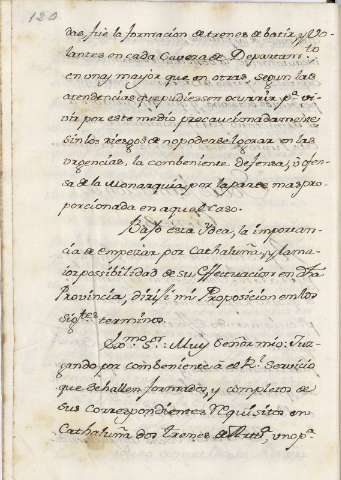 120
das, fue la formacion de trenes de batir, y Vo-
lantes en cada Caveza de Departamto
en unas maior que en otras, segun las
atendencias que pudiessen ocurrir pa. vi-
vir por este medio precaucionadamente
sin los riesgos de no poderse lograr en las
urgencias, la combeniente defensa, ù ofen-
sa de la Monarquia, por la parte mas pro-
porcionada en aquel caso.
Bajo esta Idea, la importan-
cia de empezar por Cathaluña, y la ma-
ior posibilidad de su Effectuacion en dha
Provincia, dirijí mi Proposicion en los
sigtes terminos.
Exmo. Sr. Muy Señor mio: Juz-
gando por combeniente a el Rl. Servicio
que se hallen formados, y completos de
sus correspondientes Requisitos en
Cathaluña dos trenes de Artta, uno pa.